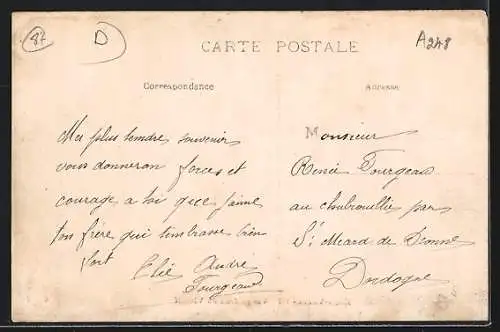 87
D
A248
CARTE POSTALE
Correspondance
Adresse
Mes plus tendre souvenir
vous donneron forces et
courage a toi que j'aime
ton frère qui t'embrasse bien
fort Elie André
Fourgeaud
Monsieur
René Fourgeau
au par
St Meard de Dronne
Dordogne